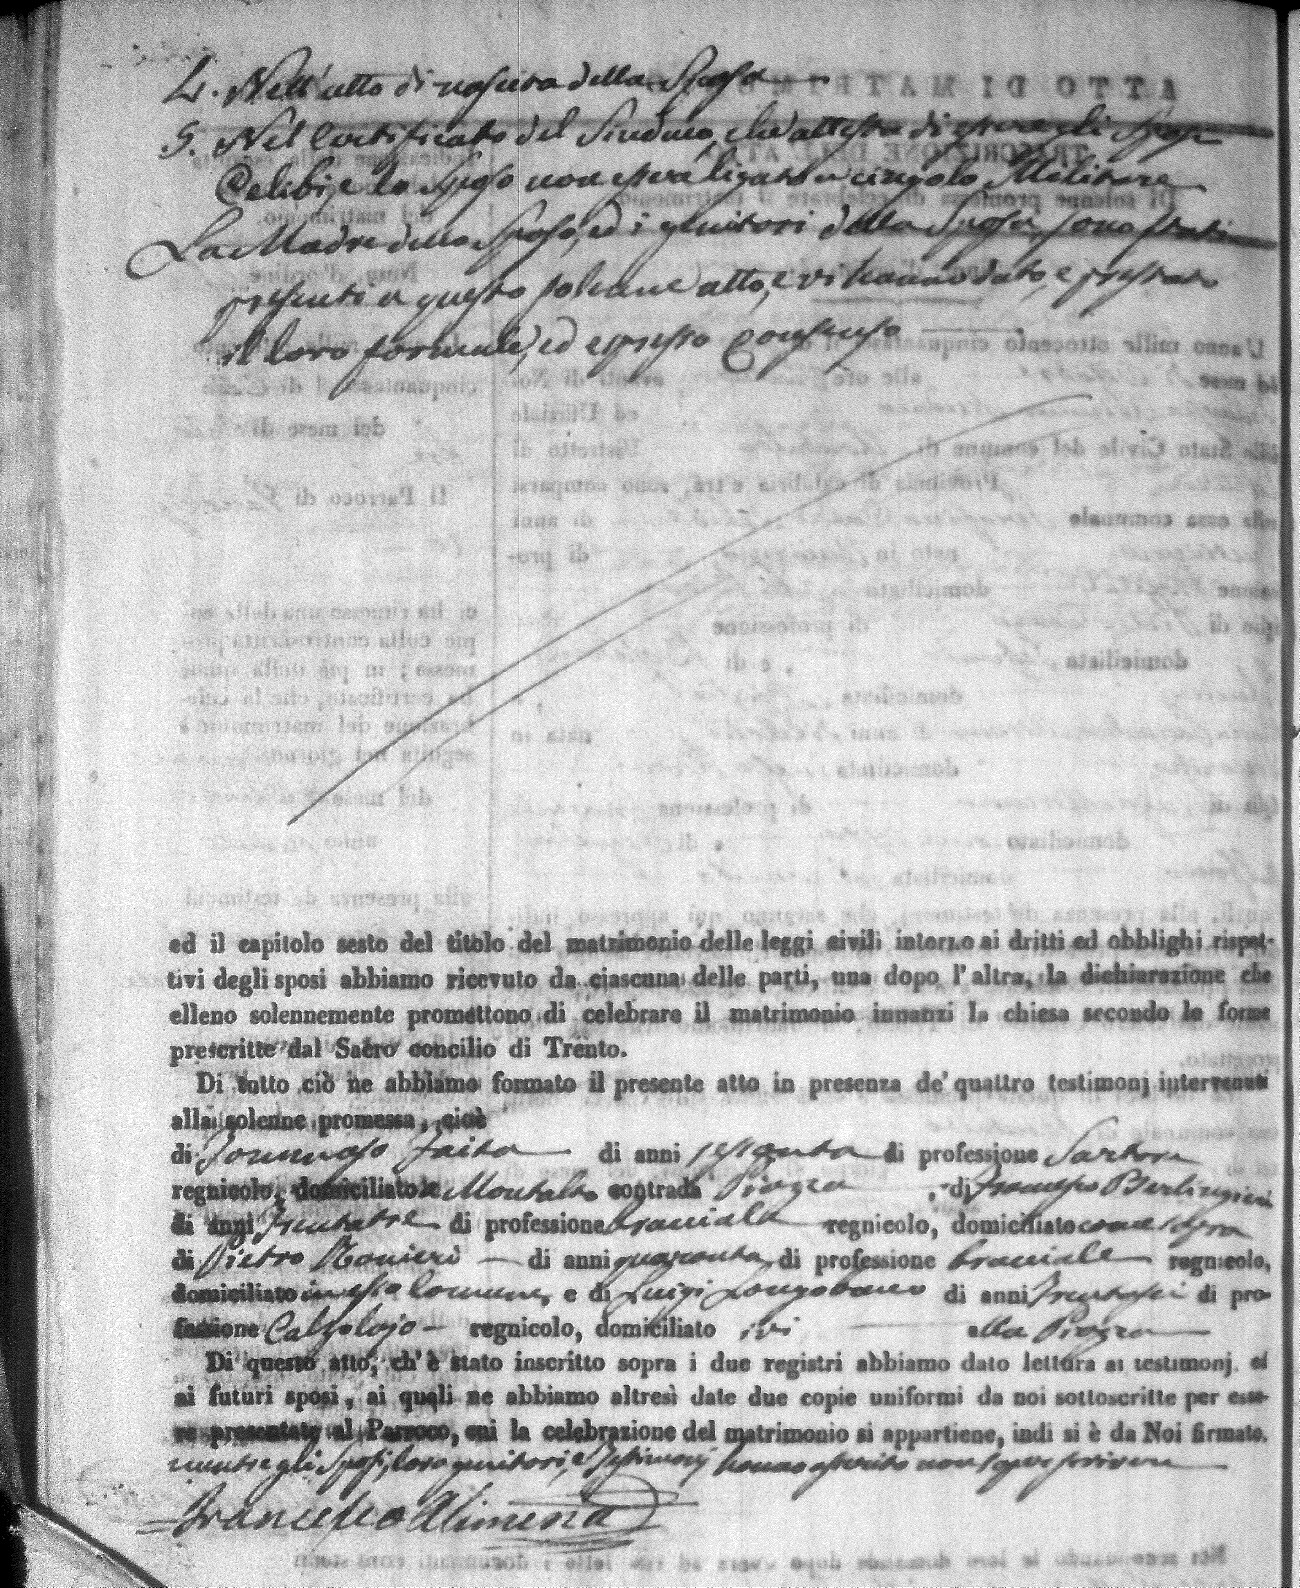 4. Nell'atto di nascita della Sposa
5. Nel Certificato del Sindaco, che attesta di essere gli Sposi
Celibi e lo Sposo non essere ligato a cingolo Militare
La Madre dello Sposo, ed i genitori della Sposa sono stati
presenti a questo solenne atto, e vi hanno dato, e prestato
il loro formale, ed espresso Consenso
ed il capitolo sesto del titolo del matrimonio delle leggi civili intorno ai dritti ed obblighi rispet-
tivi degli sposi abbiamo ricevuto da ciascuna delle parti, una dopo l'altra, la dichiarazione che
elleno solennemente promettono di celebrare il matrimonio innanzi la chiesa secondo le forme
prescritte dal Sacro concilio di Trento.
Di tutto ciò ne abbiamo formato il presente atto in presenza de' quattro testimonj intervenuti
alla solenne promessa, cioè
di Tommaso Zaita di anni sessanta di professione Sartore
regnicolo, domiciliato a Montalto contrada Piazza, di Francesco Berlingieri
di anni Trentatre di professione braciale regnicolo, domiciliato come sopra
di Pietro Ranieri di anni quaranta di professione braciale regnicolo,
domiciliato in esso Comune, e di Luigi Longobucco di anni Trentasei di pro-
fessione Calzolajo regnicolo, domiciliato ivi alla Piazza
Di questo atto, ch'è stato inscritto sopra i due registri abbiamo dato lettura ai testimonj ed
ai futuri sposi, ai quali ne abbiamo altresì date due copie uniformi da noi sottoscritte per esse-
re presentate al Parroco, cui la celebrazione del matrimonio si appartiene, indi si è da Noi firmato,
mentre gli Sposi, loro genitori, e Testimonj hanno asserito non saper scrivere
Francesco Alimena